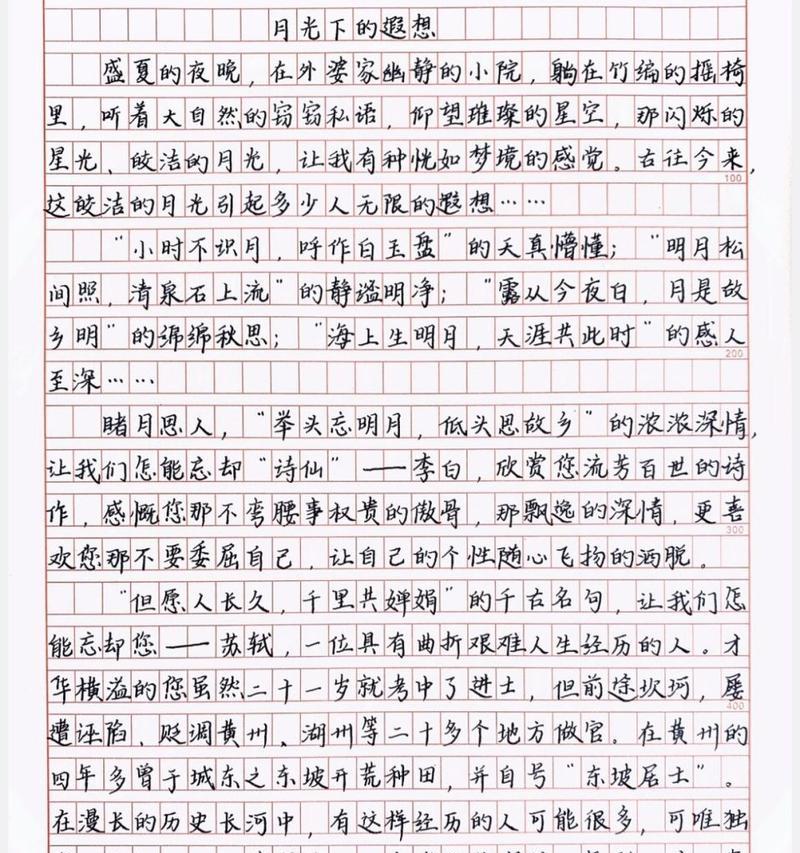 月光下的遐想
盛夏的夜晚，在外婆家幽静的小院，躺在竹编的摇椅
里，听着大自然的窃窃私语，仰望璀璨的星空，那闪烁的
星光、皎洁的月光，让我有种恍如梦境的感觉。古往今来，
100
这皎洁的月光引起多少人无限的遐想……
“小时不识月，呼作白玉盘”的天真懵懂；“明月松
间照，清泉石上流”的静谧明净；“露从今夜白，月是故
乡明”的绵绵秋思；“海上生明月，天涯共此时”的感人
200
至深……
睹月思人，“举头忘明月，低头思故乡”的浓浓深情，
让我们怎能忘却“诗仙”——李白，欣赏您流芳百世的诗
作，感慨您那不弯腰事权贵的傲骨，那飘逸的深情，更喜
300
欢您那不要委屈自己，让自己的个性随心飞扬的洒脱。
“但愿人长久，千里共婵娟”的千古名句，让我们怎
能忘却您——苏轼，一位具有曲折艰难人生经历的人。才
华横溢的您虽然二十一岁就考中了进士，但前途坎坷，屡
400
遭诬陷、贬调黄州、湖州等二十多个地方做官。在黄州的
四年多曾于城东之东坡开荒种田，并自号“东坡居士”。
在漫长的历史长河中，有这样经历的人可能很多，可唯独